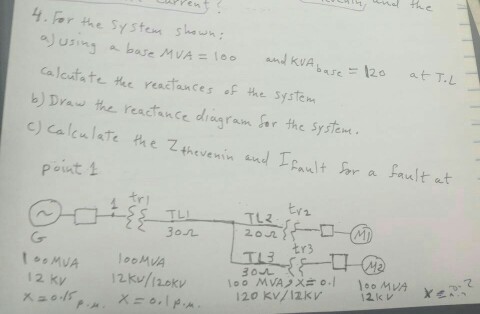 current?
and the
4. For the system shown:
a) using a base MVA = 100 and KVA base = 120 at T.L
Calculate the reactances of the system
b) Draw the reactance diagram for the system.
c) Calculate the Z thevenin and I fault for a fault at
point 1
1 tr1 TL1 TL2 tr2
30Ω 20Ω M1
G TL3 tr3
30Ω M2
100 MVA 100 MVA 100 MVA, X = 0.1 100 MVA
12 KV 12KV/120KV 120 KV/12KV 12KV
X = 0.15 p.u. X = 0.1 p.u. X =